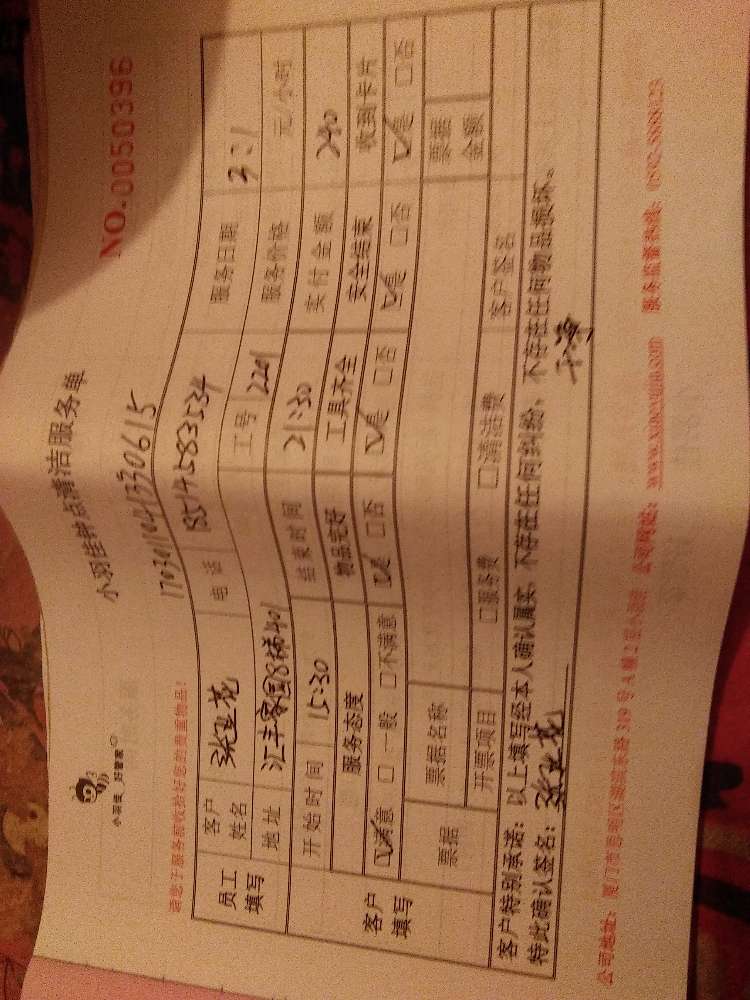 小羽佳 好管家
小羽佳钟点清洁服务单
NO.0050396
请您于服务前收拾好您的贵重物品!
员工填写
客户姓名 张亚花 电话 18514583534 服务日期 3:1
地址 工号 2201 服务价格 元/小时
客户填写
开始时间 15:30 结束时间 21:30 实付金额 240
服务态度 物品完好 工具齐全 安全结束 收到卡片
☑满意 □一般 □不满意 ☑是 □否 ☑是 □否 ☑是 □否 ☑是 □否
票据 票据名称 票据金额
开票项目 □服务费 □清洁费 客户签名
客户特别承诺:以上填写经本人确认属实,不存在任何纠纷,不存在任何物品损坏。
特此确认签名:张亚花
公司地址:厦门市思明区 319号A幢2 公司网址:www.xiaoyujia.com 服务监督热线: